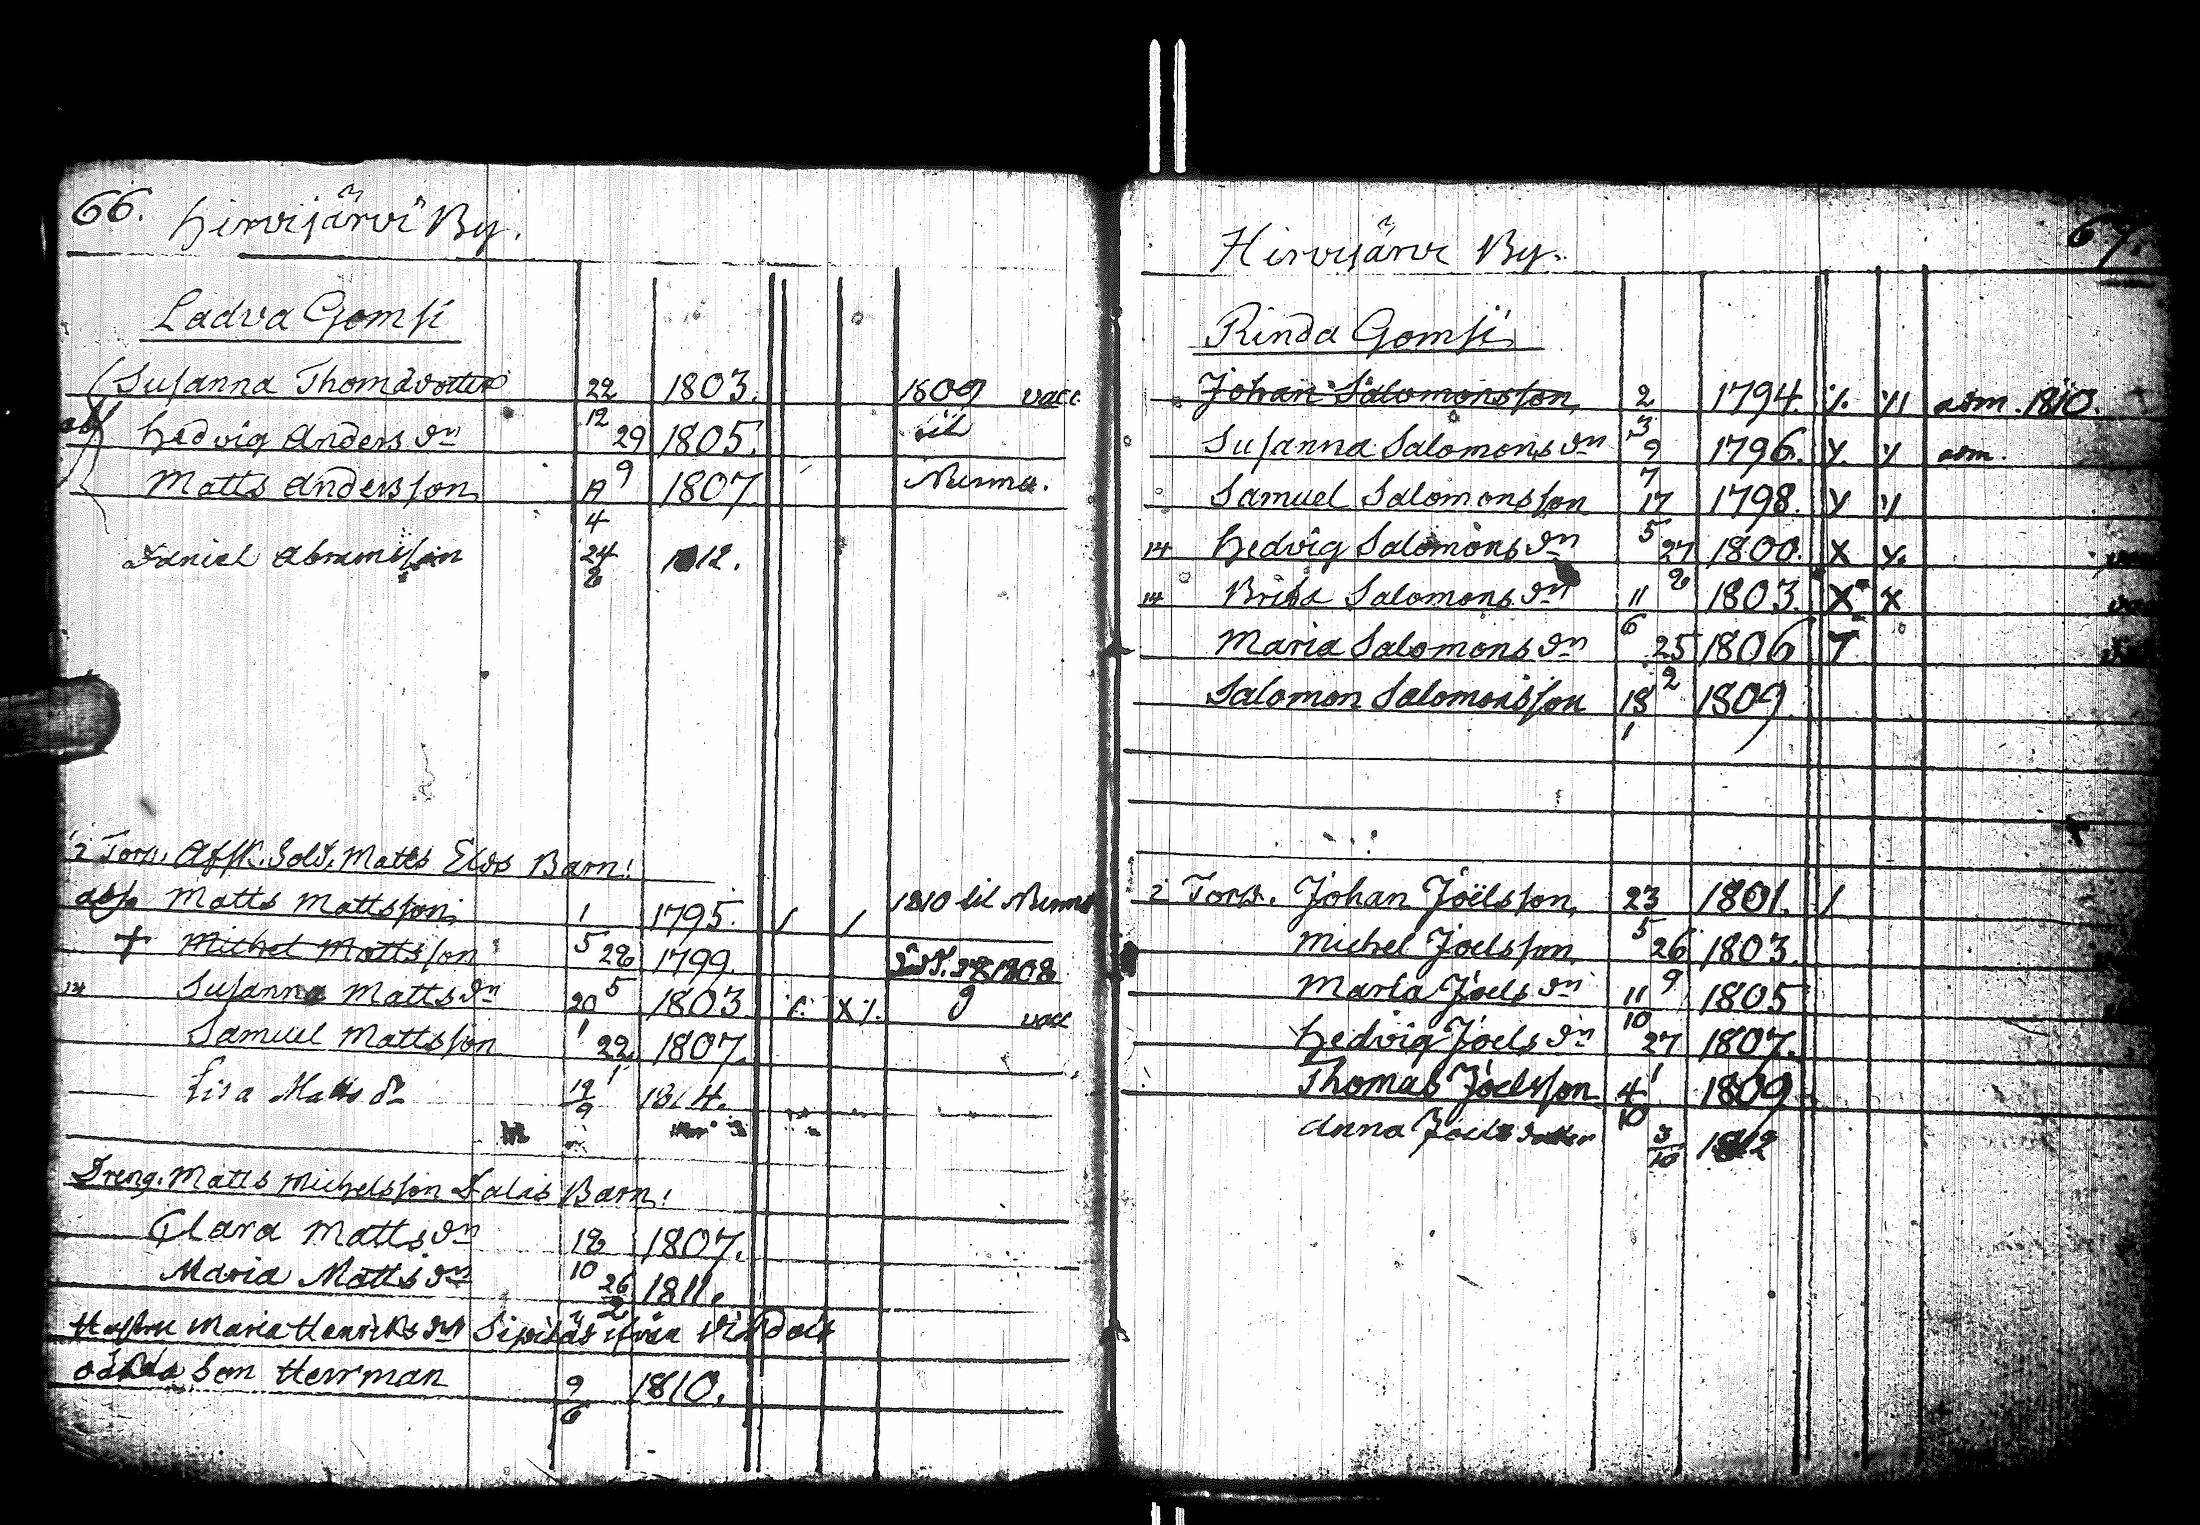 66. Hirvijärvi By.
Ladva Gomsi
Susanna Thomædotter 22/12 1803. 1809 vacc.
abs Hedvig Andersdn 29/9 1805. til
Matts Andersson 4 1807 Nurmo.
Daniel Abramsson 24/2 1812.
2 Torp. Afsk. Sold. Matts Elds Barn:
abs. Matts Mattsson 1/5 1795. / / 1810 til Nurmo
+ Michel Mattsson 28/5 1799. 1808
14 Susanna Mattsdn 20/1 1803 vacc
Samuel Mattsson 22/1 1807.
Lisa Matts dr 19/9 1814.
Dreng. Matts Michelsson Dalas Barn:
Clara Mattsdn 18/10 1807.
Maria Mattsdn 26/2 1811.
Hustru Maria Henricksdotr ifrån
oäkta Son Herrman 9/6 1810.
67.
Hirvijärvi By.
Rinda Gomsi
Johan Salomonsson 2/3 1794. adm. 1810.
Susanna Salomonsdn 9/7 1796. adm.
Samuel Salomonsson 17/5 1798.
14 Hedvig Salomonsdn 27/2 1800. X
14 Brita Salomonsdn 11/6 1803. X X
Maria Salomonsdn 25/2 1806
Salomon Salomonsson 18/1 1809
2 Torp. Johan Joëlsson 23/5 1801. /
Michel Joelsson 26/9 1803.
Maria Joelsdn 11/10 1805
Hedvig Joelsdn 27/1 1807.
Thomas Joelsson 4/10 1809
Anna Joelsdotter 3/10 1812